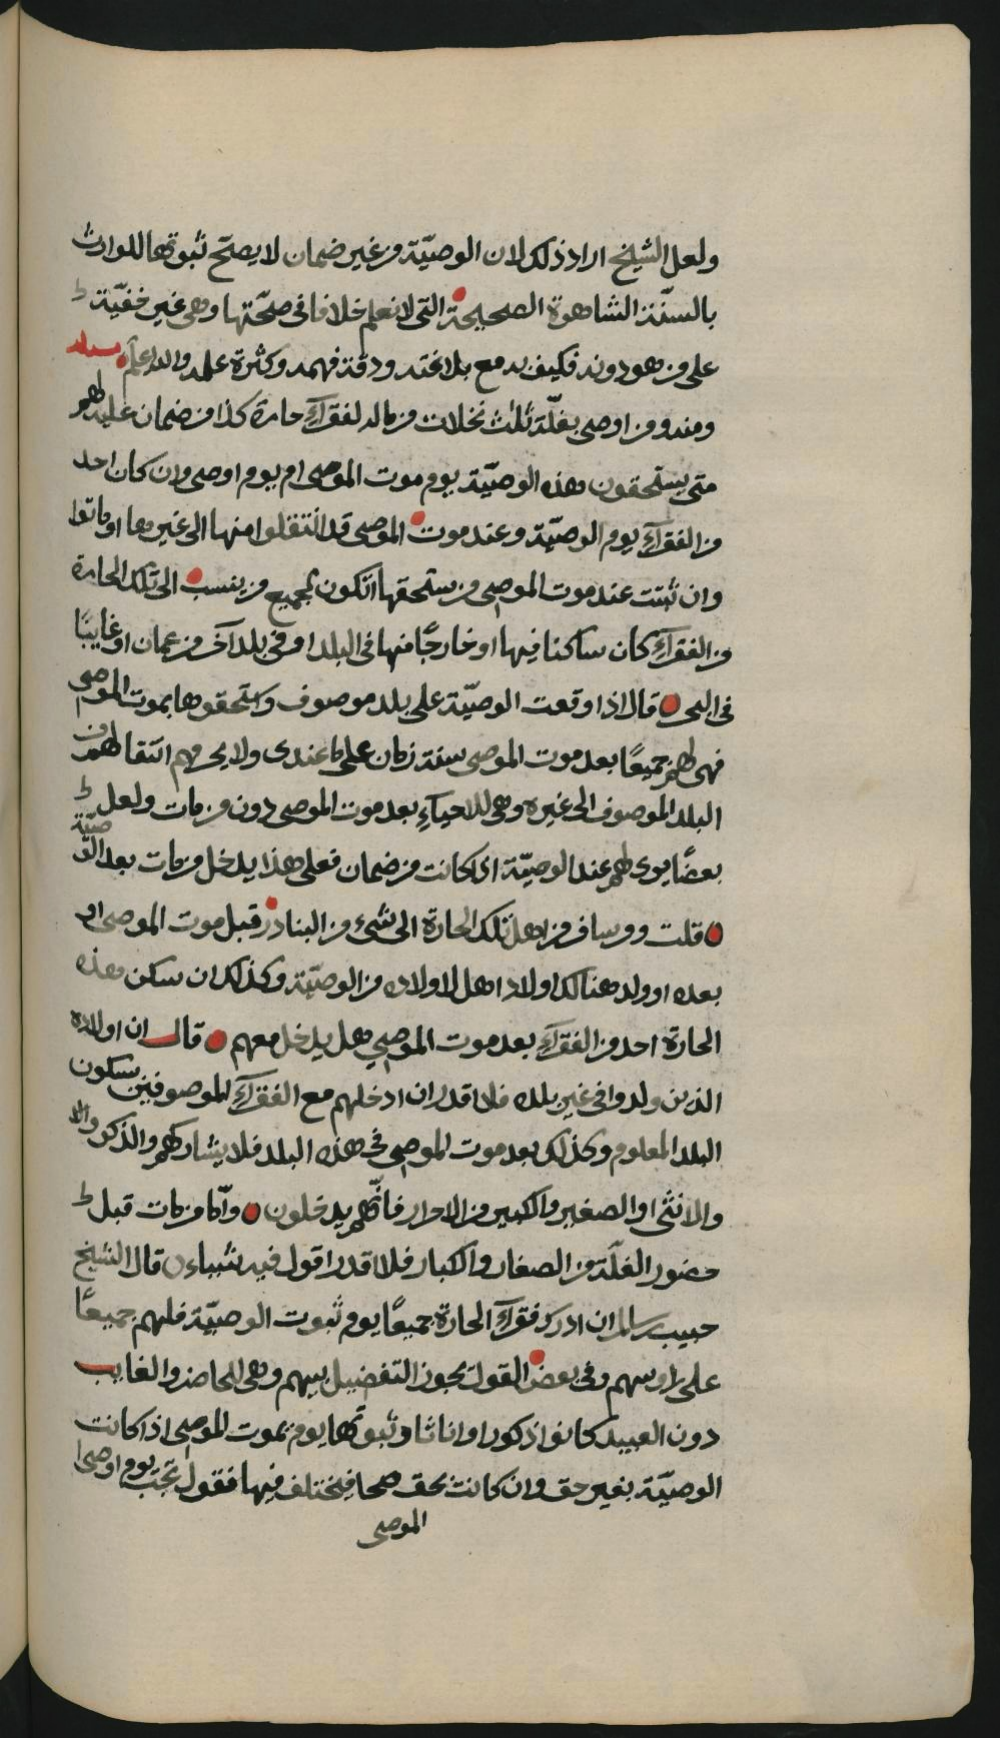 ولعل الشيخ اراد ذلك لان الوصيّة من غير ضمان لا يصحّ ثبوتها للوارث
بالسنّة الشاهرة الصحيحة التى لا نعلم خلافا فى صحّتها وهى غير خفيّة
على من هو دونه فكيف به مع بلاغته ودقة فهمه وكثرة علمه والله اعلم مسئلة
ومنه ومن اوصى بغلّة ثلث نخلات من ماله لفقرآء حارة كذا من ضمان عليه لهم
متى يستحقون هذه الوصيّة يوم موت الموصى ام يوم اوصى وان كان احد
من الفقرآء يوم الوصيّة وعند موت الموصى قد انتقلوا منها الى غيرها او ماتوا
وان ثبتت عند موت الموصى من يستحقها اتكون لجميع من ينسب الى تلك الحارة
من الفقرآء كان ساكنا فيها او خارجًا منها فى البلد او فى بلد آخر من عمان او غايبًا
فى البحر قال اذا وقعت الوصيّة على بلد موصوف واستحقوها بموت الموصى
فهى لهم جميعًا بعد موت الموصى سنة زمان على ما عندى ولا يحرمهم انتقالهم من
البلد الموصوف الى غيره وهى للاحيآء بعد موت الموصى دون من مات ولعل
بعضًا يوى لهم عند الوصيّة اذا كانت من ضمان فعلى هذا يدخل من مات بعد الوصيّة
قلت ومن سافر من اهل تلك الحارة الى شىء من البنادر قبل موت الموصى او
بعده او ولد هنالك اولاد اهل لاولاده من الوصيّة وكذلك ان سكن هذه
الحارة احد من الفقرآء بعد موت الموصي هل يدخل معهم قال ان اولاده
الذين ولدوا فى غير بلده فلا اقدر ان ادخلهم مع الفقرآء الموصوفين بسكون
البلد المعلوم وكذلك بعد موت الموصى فى هذه البلد فلا يشاركهم والذكر والا
والانثى او الصغير والكبير من الاحرار فانّهم يدخلون وامّا من مات قبل
حضور الغلّة من الصغار والكبار فلا اقدر اقول فيه شيئا قال الشيخ
حبيب بن سالم ان ادرك فقرآء الحارة جميعًا يوم ثبوت الوصيّة فلهم جميعًا
على رؤسهم وفى بعض القول يجوز التفضيل بينهم وهى للحاضر والغايب
دون العبيد كانوا ذكورا او اناثا وثبوتها يوم يموت الموصى اذا كانت
الوصيّة بغير حق وان كانت بحق صحا فيختلف فيها فقول تجب يوم اوصى
الموصى